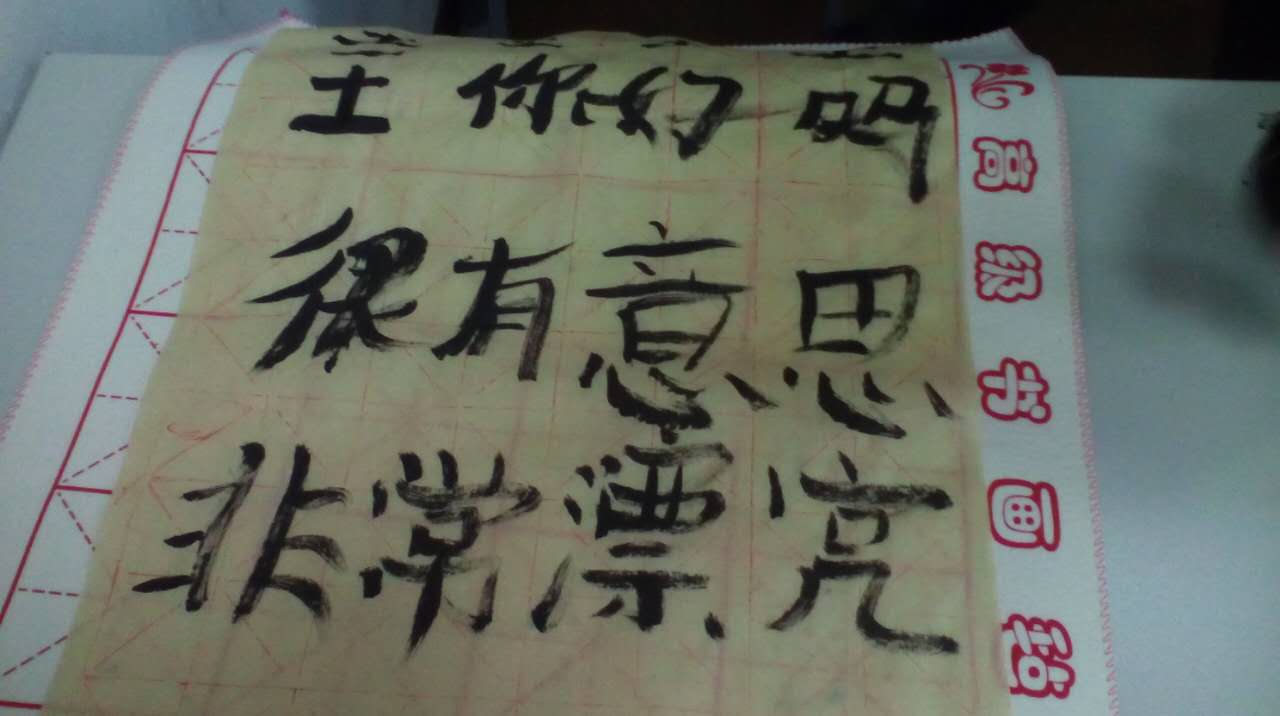 土你好吗
很有意思
非常漂亮
高级书画毡